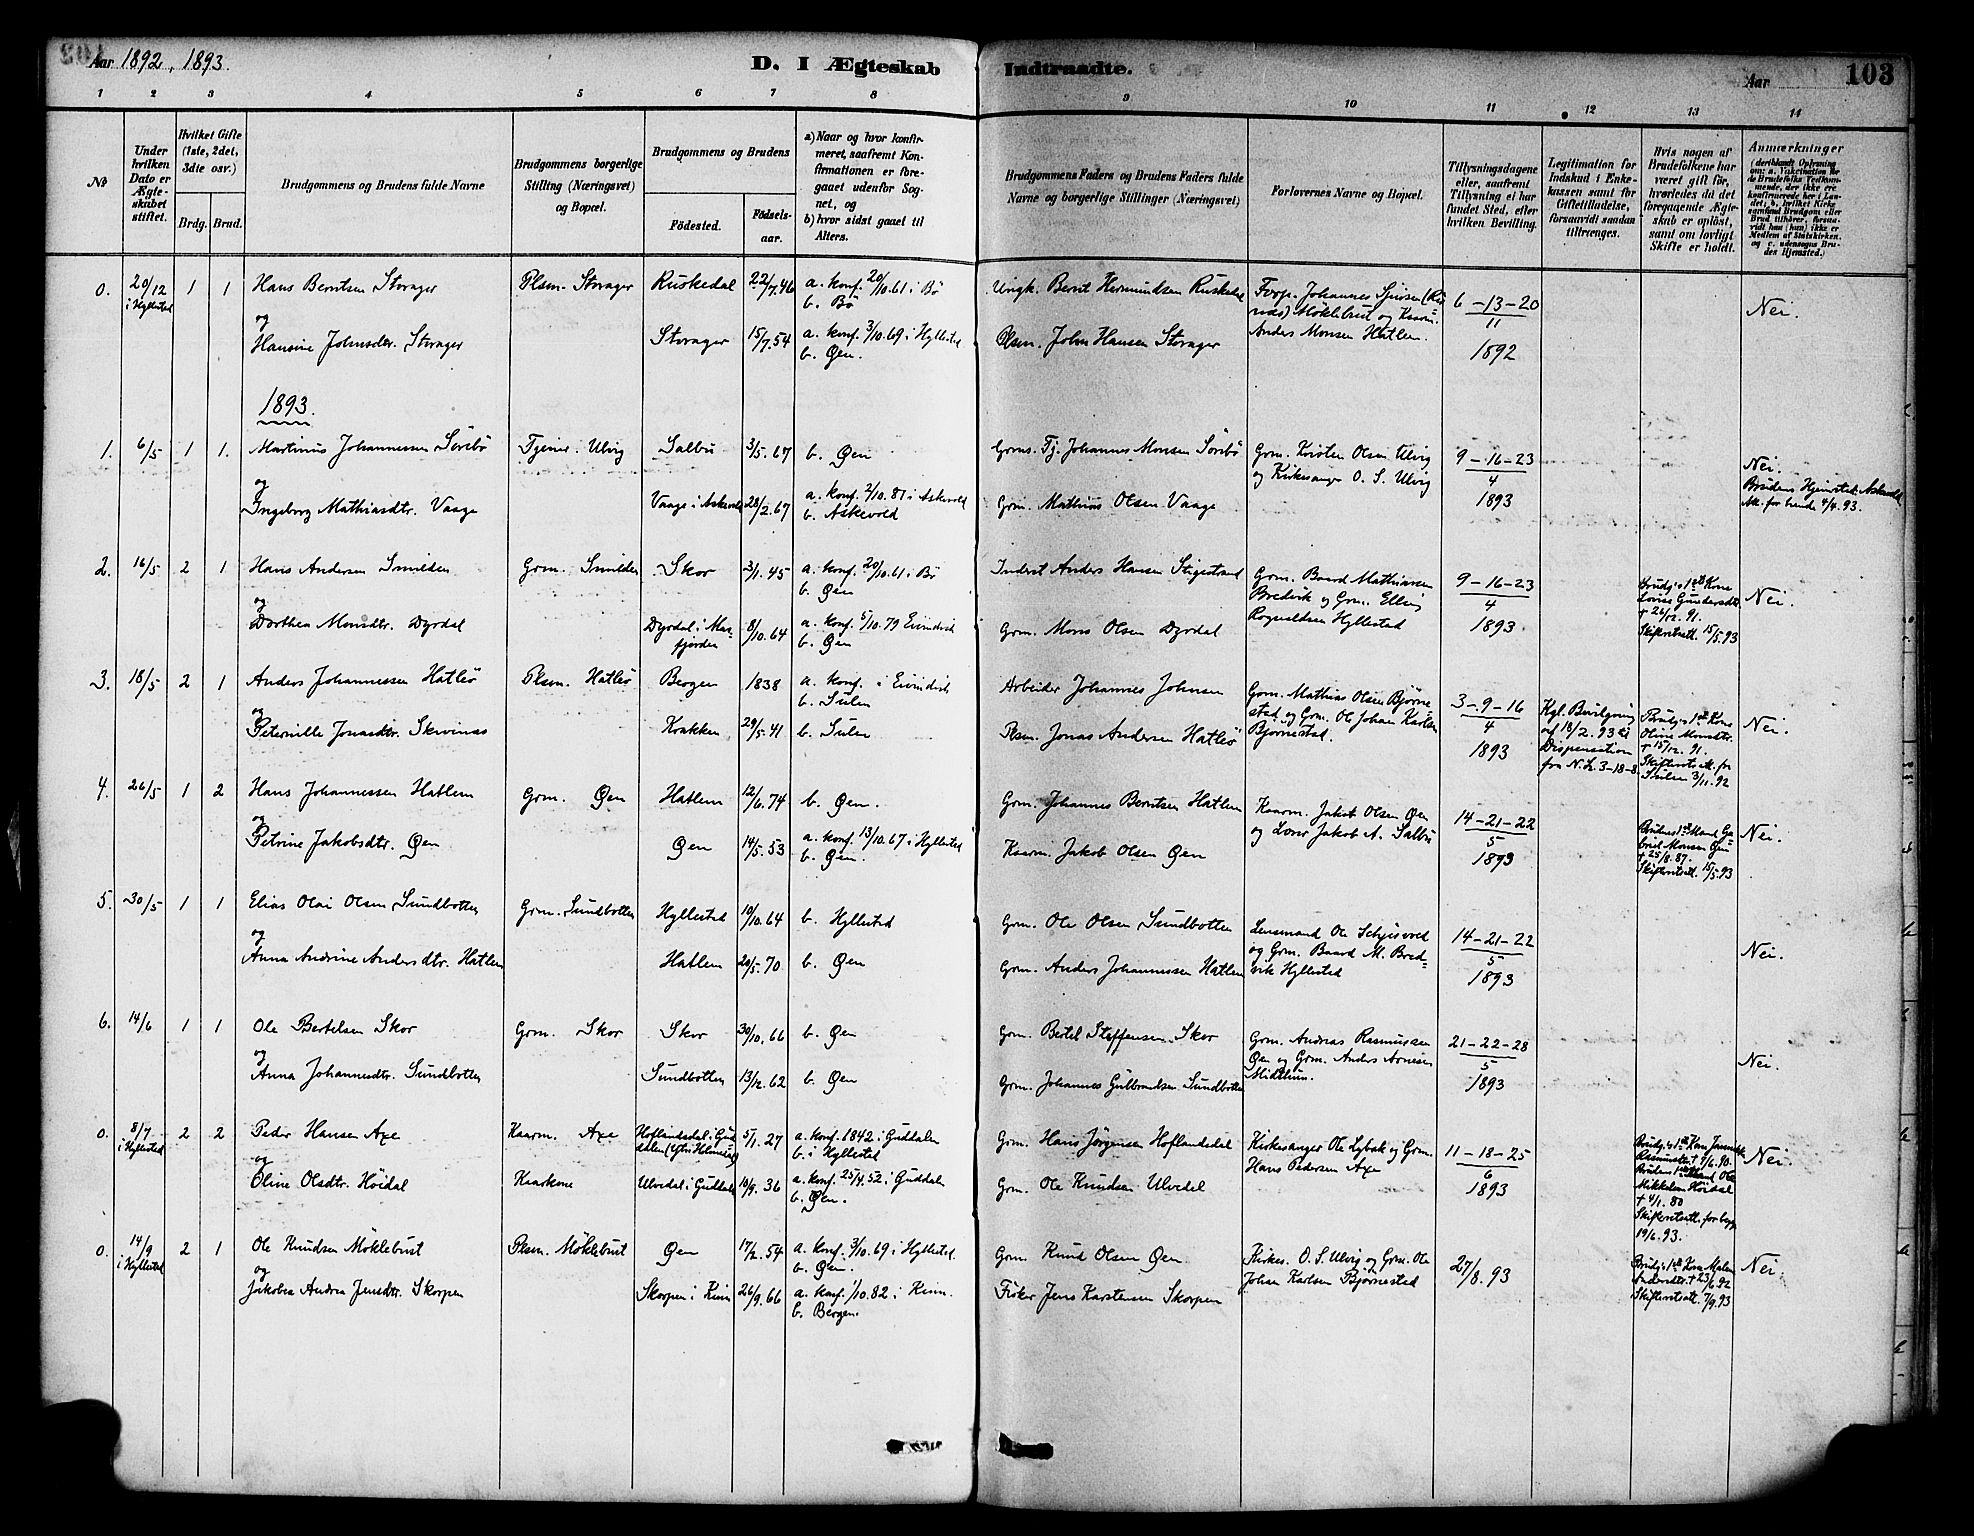 Aar 1892, 1893.
D. I Ægteskab
Indtraadte.
Aar
103
1 2 3 4 5 6 7 8
9 10 11 12 13 14
No
Under hvilken Dato er Ægteskabet stiftet.
Hvilket Gifte (1ste, 2det, 3dte osv.)
Brdg. Brud.
Brudgommens og Brudens fulde Navne
Brudgommens borgerlige Stilling (Næringsvei) og Bopæl.
Brudgommens og Brudens
Födested.
Födselsaar.
a) Naar og hvor konfirmeret, saafremt Konfirmationen er foregaaet udenfor Sognet, og
b) hvor sidst gaaet til Alters.
Brudgommens Faders og Brudens Faders fulde Navne og borgerlige Stillinger (Næringsvei)
Forlovernes Navne og Bopæl.
Tillysningsdagene eller, saafremt Tillysning ei har fundet Sted, efter hvilken Bevilling.
Legitimation for Indskud i Enkekassen samt for Giftetilladelse, forsaavidt saadan tiltrænges.
Hvis nogen af Brudefolkene har været gift för, hvorledes da det foregaaende Ægteskab er oplöst, samt om lovligt Skifte er holdt.
Anmærkninger
0. 20/12 i Hyllestad 1 1
Hans Berntsen Storager
Plsm. Storager
Ruskedal
22/7.46
a. konf. 20/10.61 i Bö
b. Bö
Bernt Hermundsen Ruskedal
6-13-20
11
1892
Nei.
og
Hansine Johnsdtr. Storager
Storager
15/7.54
a. konf. 3/10.69 i Hyllestad
b. Øen.
Plsm. John Hansen Storager
Anders Monsen Hatlem.
1893.
1. 6/5 1 1.
Martinus Johannessen Sörebö
Tjener. Ulvig
Salbu
3/5.67
b. Øen
Johannes Monsen Sörebö
Grm. Kristen Olsen Ulvig
og Kirkesanger O. S. Ulvig
9-16-23
4
1893
Nei.
Brudens Hjemsted: Askevold
og
Ingeborg Mathiasdtr. Vaage
Vaage i Askevold
28/2.67
a. konf. 2/10.81 i Askevold
b. Askevold
Grm. Mathias Olsen Vaage
2. 16/5 2 1
Hans Andersen Smilden
Grm. Smilden
Skor
3/1.45
a. konf. 20/10.61 i Bö
b. Øen
Inderst Anders Hansen Stigestrand
Grm. Baard Mathiassen
Bredvik og Grm. Elling
Rognaldsen Hyllestad
9-16-23
4
1893.
Brudg.s 1ste Kone
Lovise Gundersdtr.
† 26/12.91.
Skifteretsatt. 15/5.93
Nei.
og
Dorthea Monsdtr. Dyrdal
Dyrdal i Masfjorden
8/10.64
a. konf. 5/10.79 Eivindvik
b. Øen
Grm. Mons Olsen Dyrdal
3. 18/5 2 1
Anders Johannessen Hatlö
Plsm. Hatlö
Bergen
1838
a. konf. i Eivindvik
b. Sulen
Arbeider Johannes Johnsen
Grm. Mathias Olsen Bjørnestad
og Grm. Ole Johan Karlsen
Bjørnestad.
3-9-16
4
1893
Kgl. Bevilgning
af 18/2.93 til
Dispensation
fra N.L. 3-18-8.
Brudg.s 1ste Kone
Oline Monsdtr.
† 15/12.91.
Skifteretsatt. fra
Sulen 3/11.92
Nei.
og
Peternille Jonasdtr. Skivenes
Krakken
29/5.41
b. Sulen
Plsm. Jonas Andersen Hatlö
4. 26/5 1 2
Hans Johannessen Hatlem
Grm. Øen
Hatlem
12/6.74
b. Øen.
Grm. Johannes Berntsen Hatlem
Kaarm. Jakob Olsen Øen
og Lærer Jakob A. Salbu
14-21-22
5
1893
Brudens 1ste Mand Gabriel Monsen Øen
† 25/8.87.
Skifteretsatt. 15/5.93
Nei.
og
Petrine Jakobsdtr. Øen
Øen
14/5.53
a. konf. 13/10.67 i Hyllestad
b. Øen.
Kaarm. Jakob Olsen Øen
5. 30/5 1 1
Elias Olai Olsen Sundbotten
Grm. Sundbotten
Hyllestad
10/10.64
b. Hyllestad
Grm. Ole Olsen Sundbotten
Lensmand Ole
og Grm. Baard M. Bredvik Hyllestad
14-21-22
5
1893
Nei.
og
Anna Andrine Andersdtr. Hatlem
Hatlem
20/5.70
b. Øen
Grm. Anders Johannessen Hatlem
6. 14/6 1 1
Ole Bertelsen Skor
Grm. Skor
Skor
30/10.66
b. Øen
Grm. Bertel Steffensen Skor
Grm. Andreas Rasmussen
Øen og Grm. Anders Arnesen
Midthun.
21-22-28
5
1893
Nei.
og
Anna Johannesdtr. Sundbotten
Sundbotten
13/12.62
b. Øen
Grm. Johannes Gulbrandsen Sundbotten
0. 8/7 i Hyllestad 2 2
Peder Hansen Axe
Kaarm. Axe
Hoflandsdal i Guddalen
5/1.27
a. konf. 1842 i Guddalen
b. i Hyllestad
Grm. Hans Jörgensen Hoflandsdal
Kirkesanger Ole Sybak og Grm.
Hans Pedersen Axe
11-18-25
6
1893
Brudens 1ste Mand Ole
Mikkelsen Höidal
† 4/1.80
Skifteretsatt. for begge
19/6.93.
Nei.
og
Oline Olsdtr. Höidal
Kaarkone
Ulvedal i Guddalen
10/9.36
a. konf. 25/4.52 i Guddalen
b. Øen.
Grm. Ole Knudsen Ulvedal
0. 14/9 i Hyllestad 2 1
Ole Knudsen Möklebust
Plsm. Möklebust
Øen
17/2.54
a. konf. 3/10.69 i Hyllestad.
b. Øen.
Grm. Knud Olsen Øen
Kirkes. O. S. Ulvig og Grm. Ole
Johan Karlsen Bjørnestad
27/8.93
Brudg.s 1ste Kone Malene
Andersdtr. † 23/6.92
Skifteretsatt. 7/9.93
Nei.
og
Jakobea Andrea Jensdtr. Skorpen
Skorpen i Kinn
26/9.66
a. konf. 1/10.82 i Kinn.
b. Bergen.
Fisker Jens Karstensen Skorpen